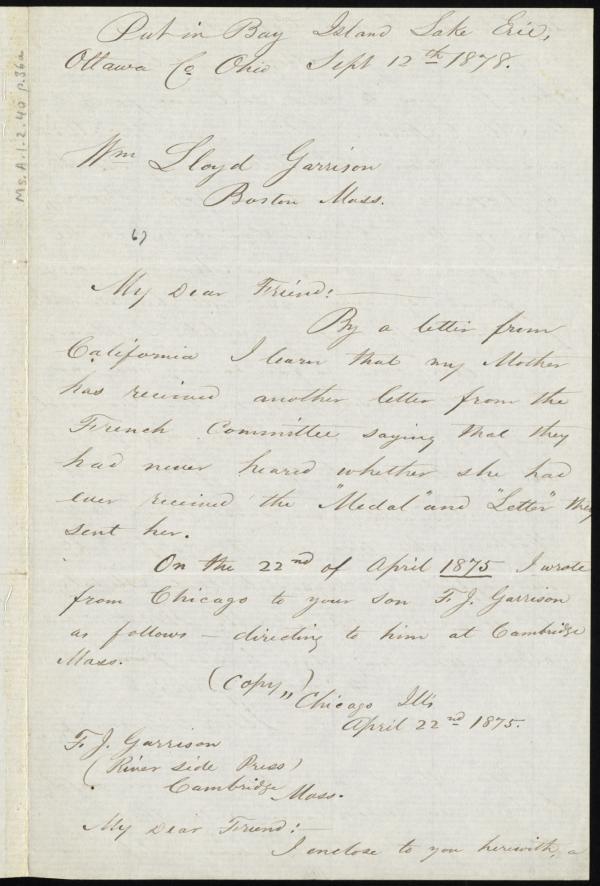 Put in Bay Island Lake Erie,
Ottawa Co Ohio Sept 12th 1878.
Ms. A. 1. 2. 40 p. 36a
Wm Lloyd Garrison
Boston Mass.
My Dear Friend:
By a letter from
California I learn that my Mother
has recieved another letter from the
French Committee saying that they
had never heared whether she had
ever received the "Medal" and "Letter" they
sent her.
On the 22nd of April 1875 I wrote
from Chicago to your son F. J. Garrison
as follows — directing to him at Cambridge
Mass.
(Copy) "Chicago Ills
April 22nd 1875.
F. J. Garrison
(River Side Press)
Cambridge
Mass.
My Dear Friend:
I enclose to you herewith, a